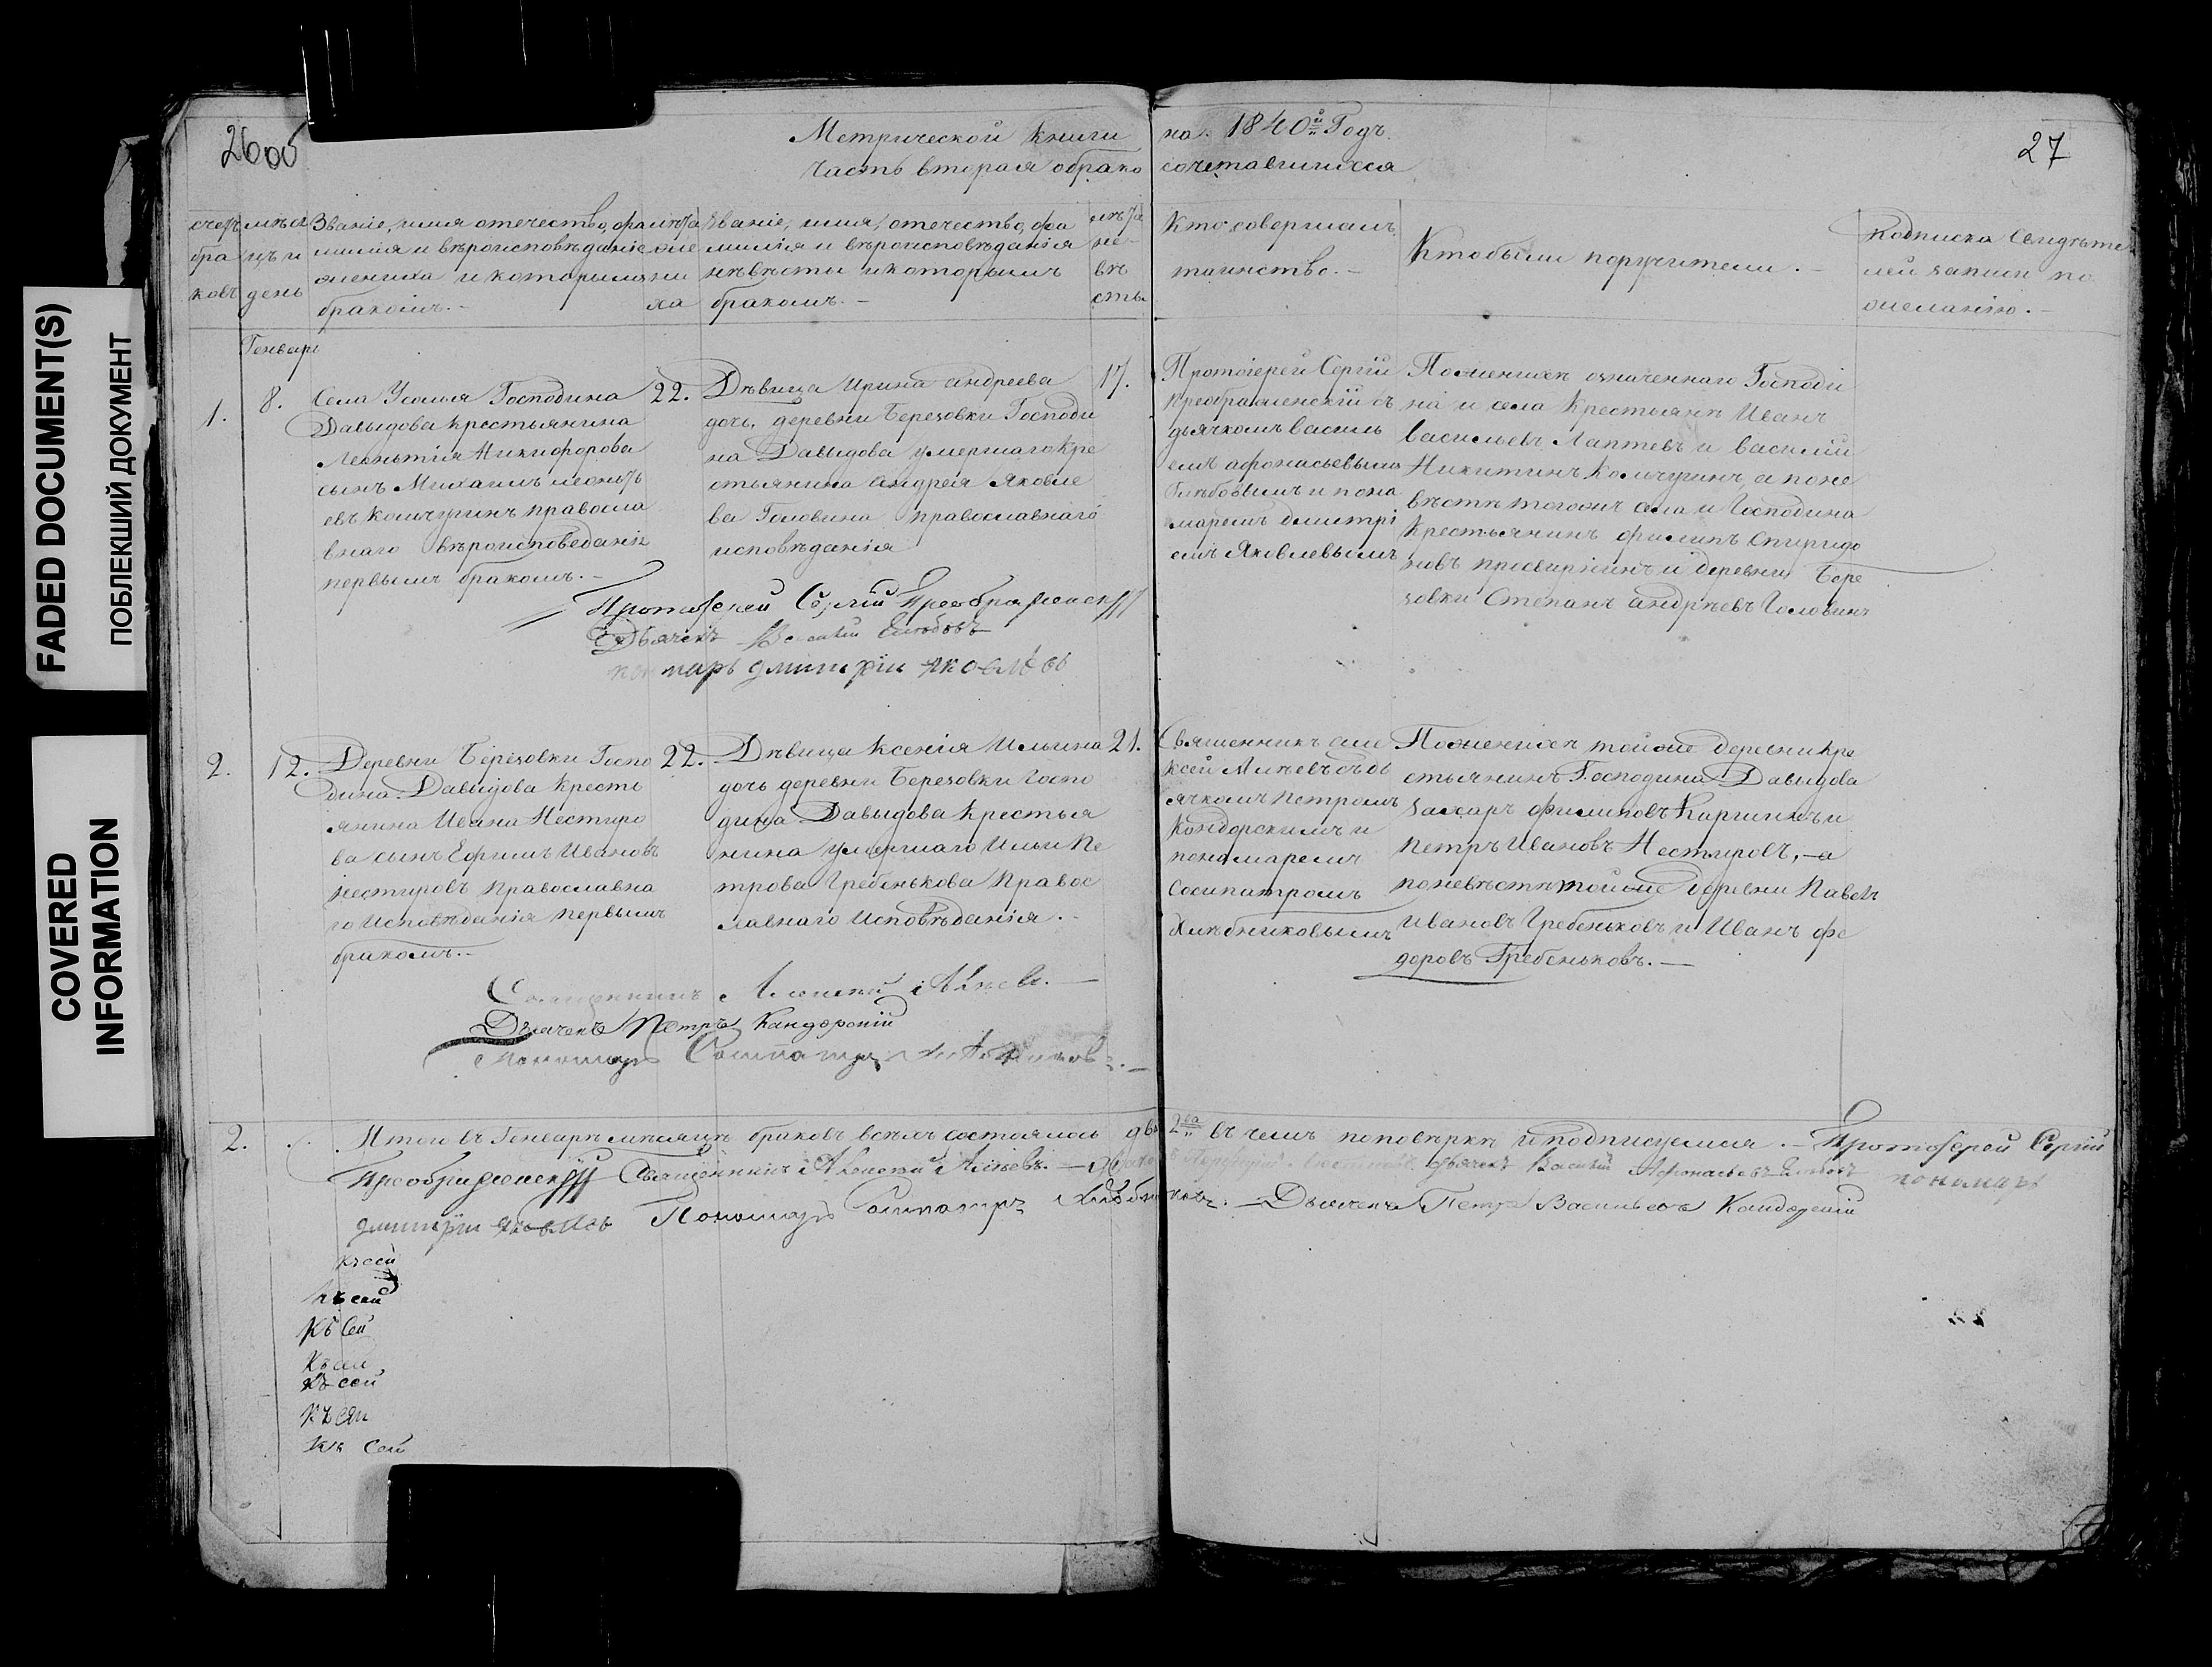 FADED DOCUMENT(S)
ПОБЛЕКШИЙ ДОКУМЕНТ
COVERED
INFORMATION
26 об
Метрической книги
на 1840й Годъ.
27
часть вторая о брако
сочетавшихся
счетъ
бра
ковъ
мѣся
цъ и
день
Званіе, имя отечество, фа
милія и вѣроисповѣданіе
жениха и которымъ
бракомъ.-
лѣта
же
ни
ха
Званіе, имя, отечество, фа
милія и вѣроисповѣданія
невѣсты и которымъ
бракомъ.-
лѣта
не-
вѣ
сты
Кто совершалъ
таинство.-
Кто были поручители.-
подписка свидѣте
лей записи по
желанію.-
Генварь
1.
8.
Села Усолья Господина
Давыдова крестьянина
Леонтия Никифорова
сынъ Михаилъ леонть
евъ Колчуринъ правосла
внаго вѣроисповеданія
первымъ бракомъ.-
22.
Дѣвица Ирина андреева
дочь, деревни Березовки Господи
на Давыдова умершаго кре
стьянина андрея Яковле
ва Головина православнаго
исповѣданія
17.
Протоіерей Сергій
Преображенскій съ
дьячкомъ василь
емъ афонасьевымъ
Глѣбовымъ и поно
маремъ дмитрі
емъ Яковлевымъ
По женихѣ означеннаго Господи
на и села Крестьянъ Иванъ
васильевъ Лаптевъ и василій
Никитинъ Колчуринъ, а по не
вѣстѣ тогожъ села и Господина
Крестьянинъ филипъ спиридо
новъ просвирнинъ и деревни Бере
зовки Степанъ андрѣевъ Головинъ
Протоіерей Сергій Преображенскій
Дьячекъ Василій Глѣбовъ
пономарь дмитрій яковлевъ
2.
12.
Деревни Березовки Госпо
дина Давыдова кресть
янина Ивана Нестеро
ва сынъ Ефимъ Ивановъ
нестировъ православна
го исповѣданія первымъ
бракомъ.-
22.
Дѣвица Ксенія Ильина
дочь деревни Березовки госпо
дина Давыдова крестья
нина умершаго Ильи Пе
трова Гребенькова правос
лавнаго исповѣданія.-
21.
Священникъ але
ксей Акневъ съ дь
ячкомъ петромъ
Кондорскимъ и
пономаремъ
Сосипатромъ
Хлѣбниковымъ
По женихѣ тойже деревни кре
стьянинъ Господина Давыдова
захаръ филиповъ Каргинъ и
петръ Ивановъ Нестировъ,- а
по невѣстѣ тойже деревни Павелъ
ивановъ Гребеньковъ и Иванъ фе
доровъ Гребеньковъ.-
Священникъ Алексей Акневъ.-
Дьячекъ Петръ Кандорскій
Пономарь Сосипатръ Хлѣбниковъ.-
2.
Итого въ Генварѣ мѣсяцѣ браковъ всѣхъ состоялось два 2ва въ чемъ по повѣркѣ и подписуемся.- Протоіерей Сергій
Преображенскій Священникъ Алексей Акневъ.- дьячекъ Василій Афонасьевъ Глѣбовъ пономарь
дмитрій яковлевъ Пономарь Сосипатръ Хлѣбниковъ.- Дьячекъ Петръ Васильевъ Кандорскій
къ сей
къ сей
Къ Сей
Къ сей
Къ сей
Къ сей
Къ Сей